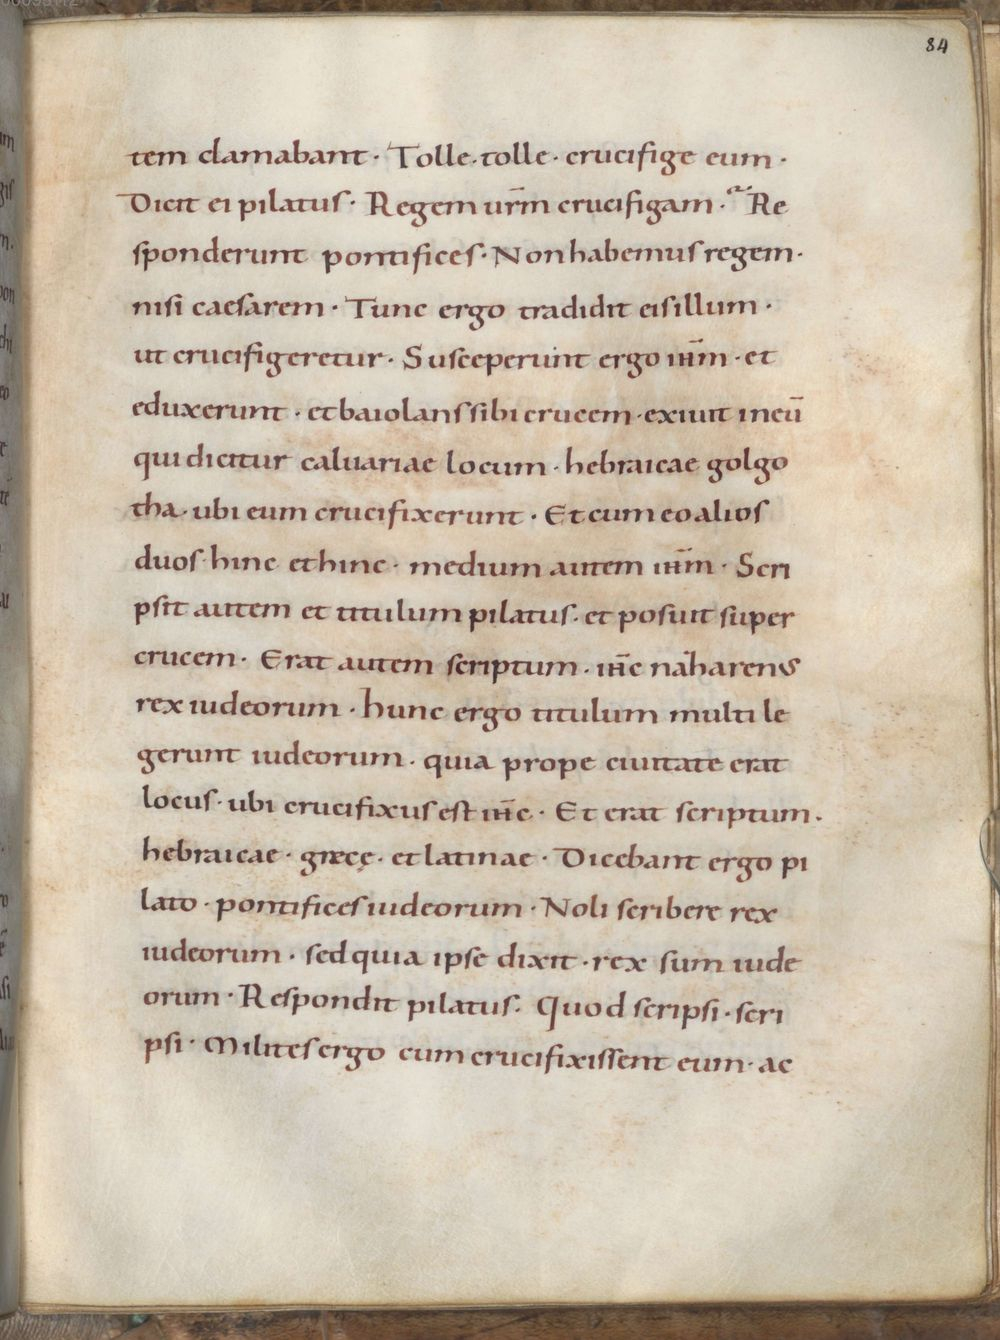 84
tem clamabant · Tolle · tolle · crucifige eum ·
Dicit ei pilatus · Regem ur̄m crucifigam · Re
sponderunt pontifices · Non habemus regem ·
nisi caesarem · Tunc ergo tradidit eis illum ·
ut crucifigeretur · Susceperunt ergo ih̄m · et
eduxerunt · et baiolans sibi crucem · exiuit in eū
qui dicitur caluariae locum · hebraicae golgo
tha · ubi eum crucifixerunt · Et cum eo alios
duos hinc et hinc · medium autem ih̄m · Scri
psit autem et titulum pilatus · et posuit super
crucem · Erat autem scriptum · ih̄c naharenus
rex iudeorum · hunc ergo titulum multi le
gerunt iudeorum · quia prope ciuitate erat
locus · ubi crucifixus est ih̄c · Et erat scriptum ·
hebraicae · grecę · et latinae · Dicebant ergo pi
lato · pontifices iudeorum · Noli scribere rex
iudeorum · sed quia ipse dixit · rex sum iude
orum · Respondit pilatus · Quod scripsi · scri
psi · Milites ergo cum crucifixissent eum · ac